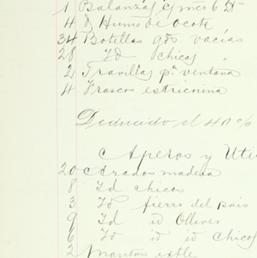 1 Balanza
4 d Humo de Ocote
34 Botellas gds vacias
28 Id chicas
2 Travillas pa ventana
4 Frascos estricnina
Deducido el 40%
Aperos y Uti
20 Arados madera
8 Id chicos
3 Id fierro del pais
9 Id id Oliver
6 Id id id chicos
2 Mantas